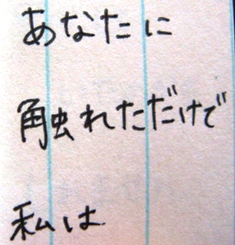 あなたに
触れただけで
私は